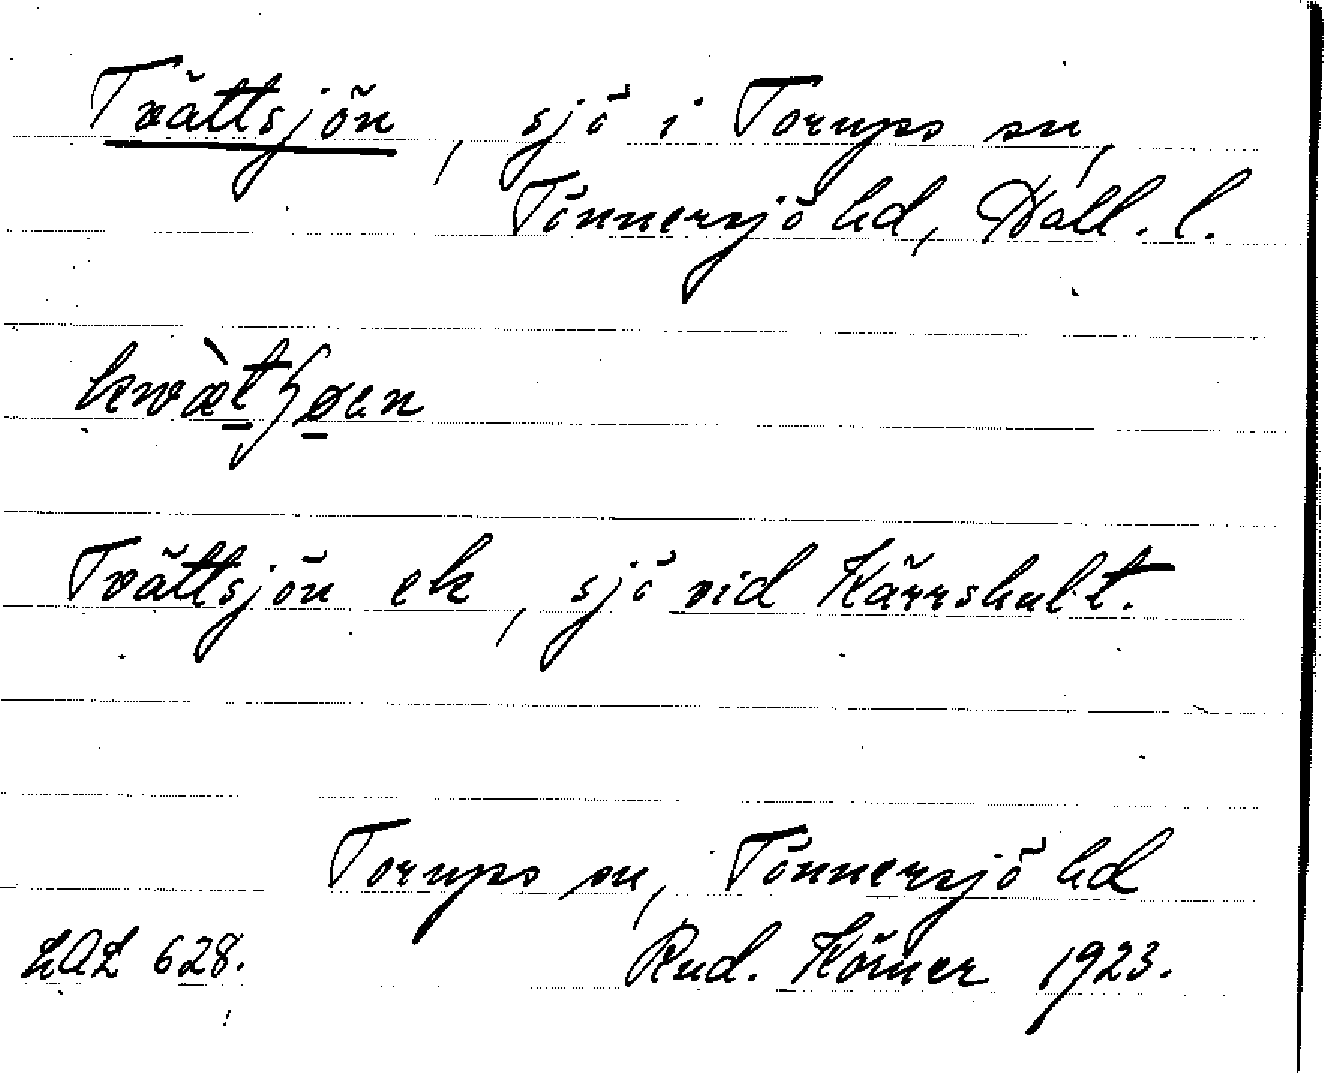 Tvättsjön, sjö i Torups sn,
Tönnersjö hd, Hall. l.
Tvättsjön ek, sjö vid Kärrshult.
Torups sn, Tönnersjö hd
LAL 628. Rud. Körner 1923.